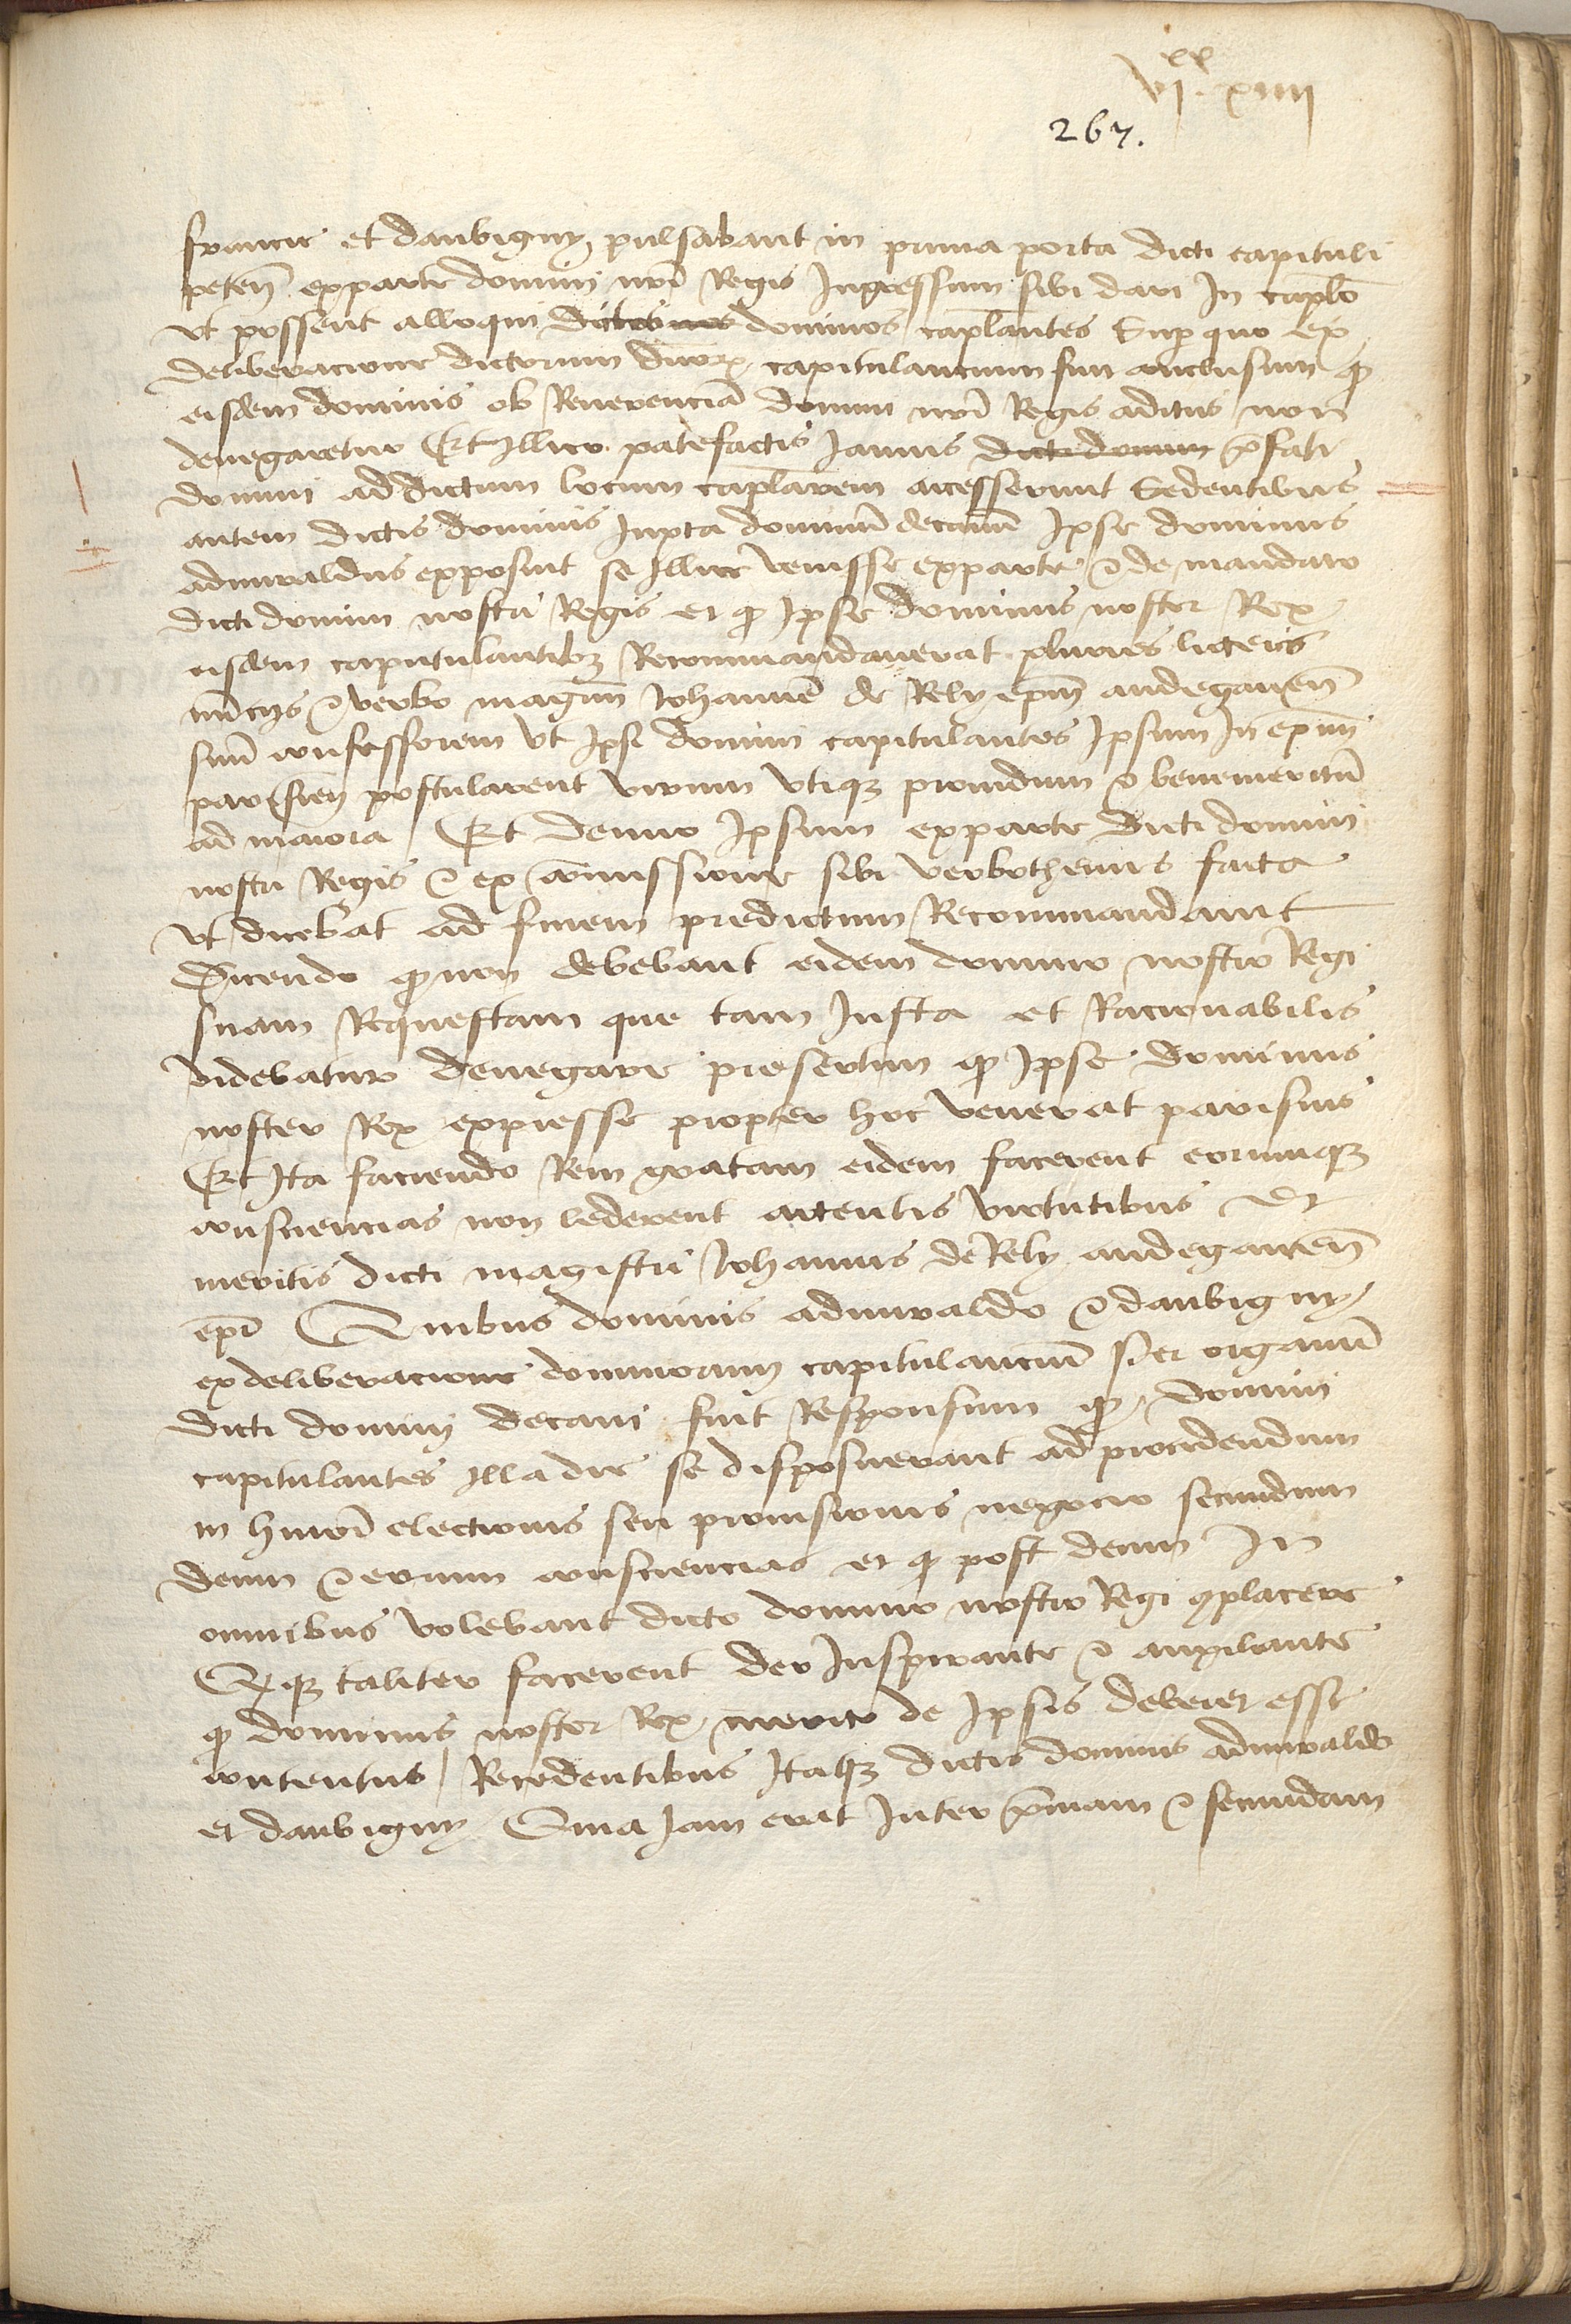 VIxx. xiiii
267.
francie et daubigny, pulsabant in prima porta dicti capituli
peten̄ exparte domini nr̄i Regis Ingressum sibi dari In cap̄lo
vt possent alloqui dictos dominos cap̄lantes Sup quo ex
deliberacione dictorum dn̄orꝝ capitulancium fuit conclusum ꝙ
eisdem dominis ob Reuerenciā domini nr̄i Regis aditus non
denegaretur Et Illico patefactis Ianuis dicti domini p̄fati
domini ad dictum locum cap̄larem accesserunt Sedentibus
autem dictis dominis Iuxta dominū decanū Ipse dominus
admiraldus exposuit se Illuc venisse exparte ⁊ de mandato
dicti domini nostri Regis et ꝙ Ipse dominus noster Rex
eisdem capitulantibꝫ Recommandauerat pluries licteris
nūcijs ⁊ verbo magr̄m Iohannē de Rely ep̄m andegauen̄
suū confessorem vt Ipsi domini capitulantes Ipsum In ep̄m
parisien̄ postularent virum vtiqꝫ prouidum ⁊ benemeritū
ad maiora Et denuo Ipsum exparte dicti domini
nostri Regis ⁊ ex cōmissione sibi verbothenus facta
vt dicebat ad finem predictum Recommandauit
Dicendo ꝙ non debebant eidem domino nostro Regi
suam Requestam que tam Iusta et Racionabilis
videbatur denegare presertim ꝙ Ipse dominus
noster Rex expresse propter hoc venerat parisius
Et Ita faciendo Rem gratam eidem facerent eorumqꝫ
consciencias non lederent actentis virtutibus et
meritis dicti magistri Iohannis de Rely andegauen̄
ep̄i Quibus dominis admiraldo ⁊ daubigny
ex deliberacione dominorum capitulanciū sicr organū
dicti dominj decani fuit Responsum ꝙ domini
capitulantes Illa die se disposuerant ad procedendum
in hmōi electionis seu prouisionis negocio secundum
deum ⁊ eorum consciencias et ꝙ post deum In
omnibus volebant dicto domino nostro Regi ꝯplacere
Et qꝫ taliter facerent deo Inspirante ⁊ auxiliante
ꝙ dominus noster Rex merito de Ipsis deberet esse
contentus / Recedentibus Itaqꝫ dictis dominis admiraldo
et daubigny Quia Iam erat Inter p̄mam ⁊ secundam